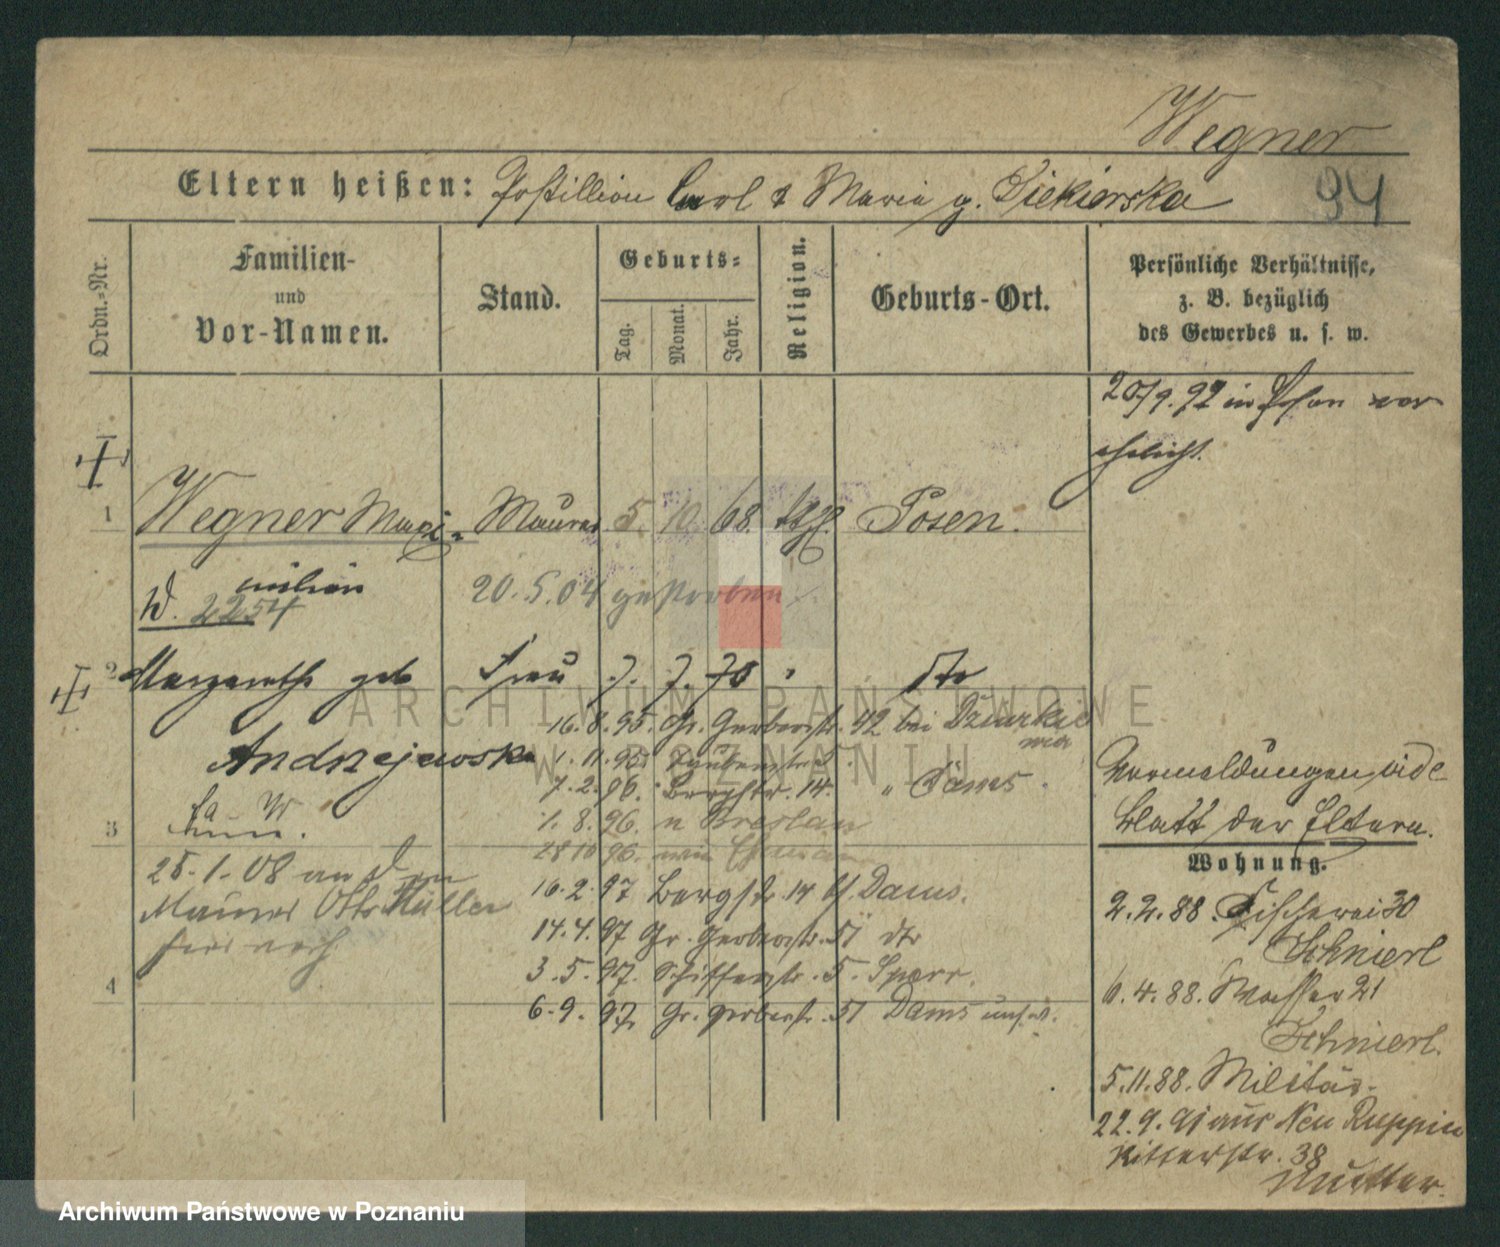 Wegner
Eltern heißen: Postillion Carl & Maria g. Siekierska
94
Ordn.-Nr.
Familien-
und
Vor-Namen.
Stand.
Geburts-
Tag.
Monat.
Jahr.
Religion.
Geburts-Ort.
Persönliche Verhältnisse,
z. B. bezüglich
des Gewerbes u. s. w.
20/9.92 in Posen ver
ehelicht.
1 Wegner Maxi- Maurer 5. 10. 68. kthl. Posen.
milian
W. 2254
20.5.04 gestorben
2 Margarethe geb Frau 7. 7. 70 " dto
16.8.95. Gr. Gerberstr. 42 bei
Andrzejewska 1.11.95
7.2.96. Bergstr. 14. " Dams
3
1.8.96. n Breslau
28 10 96.
25.1.08 an den
Maurer Otto Müller
16.2.97 Bergstr. 14 b/ Dams.
14.4.97 Gr. Gerberstr. 51 dto
4
3.5.97. Schifferstr. 5. Sparr.
6.9.97. Gr. Gerberstr. 51 Dams
Vermeldungen, vide
Blatt der Eltern.
Wohnung.
2.2.88. Fischerei 30
Schnierl
6.4.88. Wasser 21
Schnierl.
5.11.88. Militär.
22.9.91 aus Neu Ruppin
Ritterstr. 38
Mutter.
ARCHIWUM PAŃSTWOWE
W POZNANIU
Archiwum Państwowe w Poznaniu